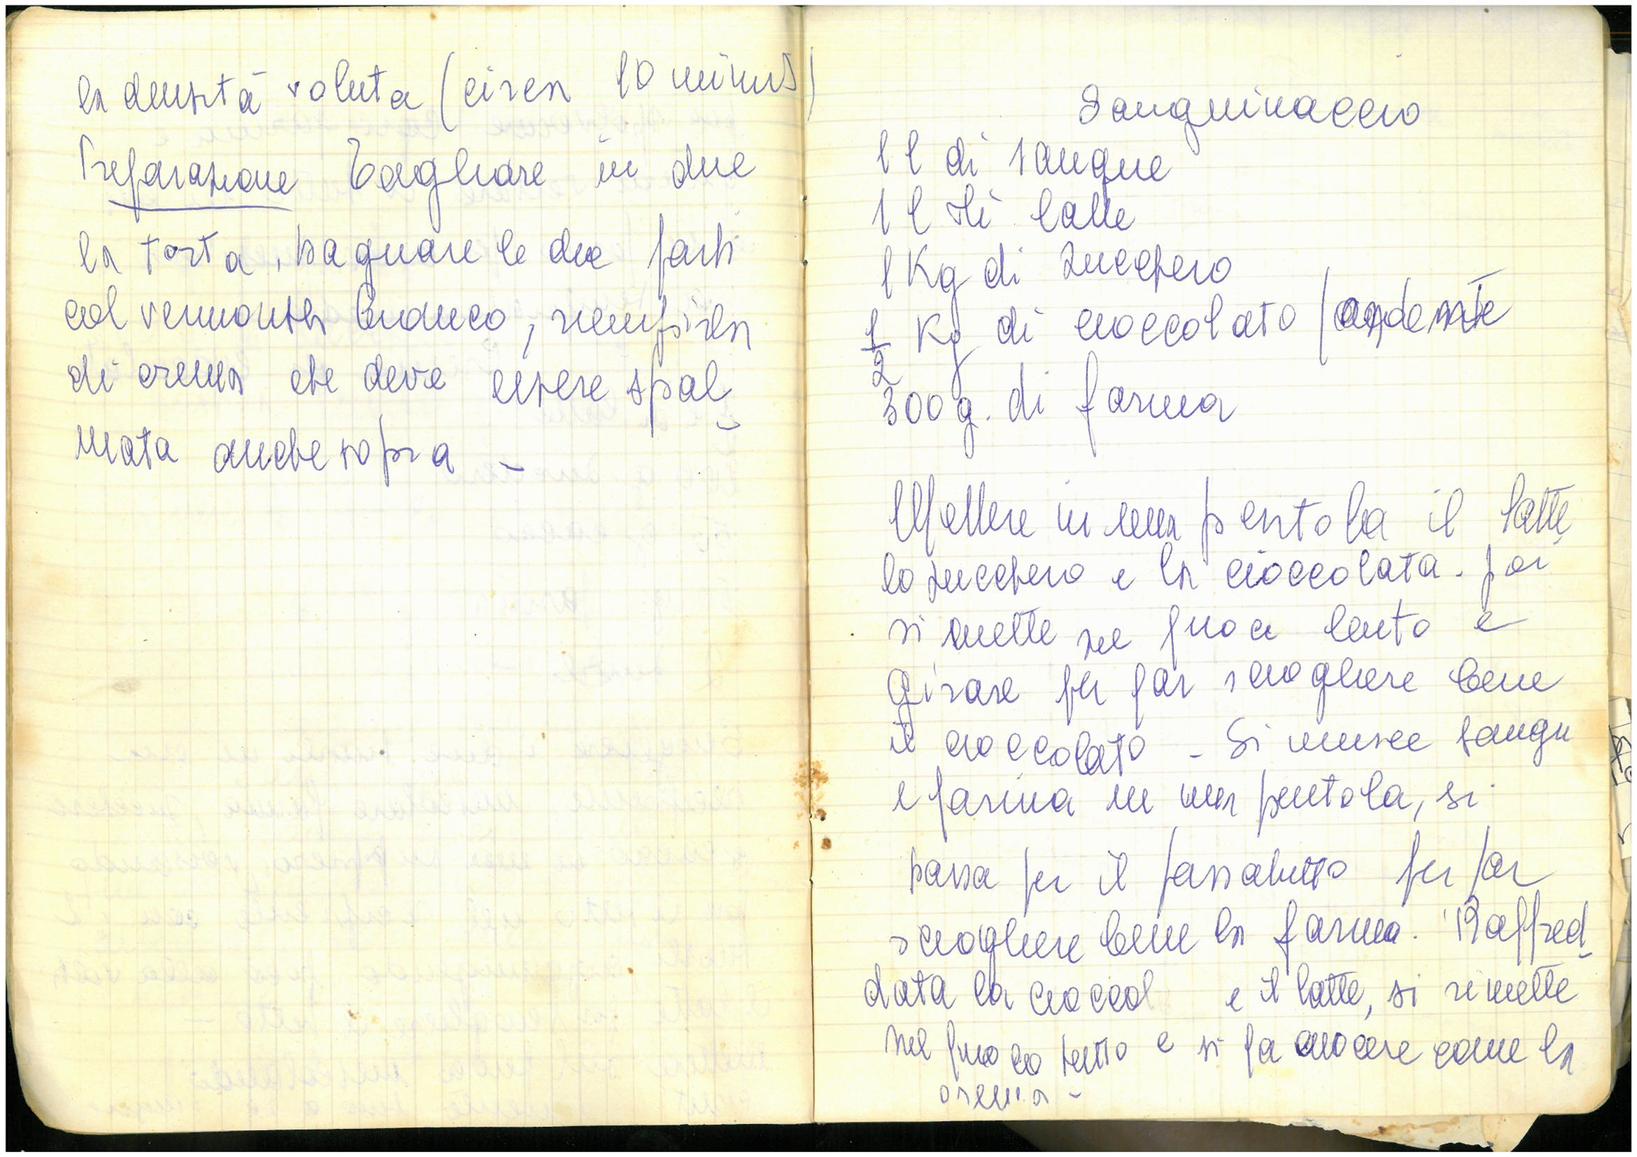 la densità voluta (circa 10 minuti)
Preparazione Tagliare in due
la torta, bagnare le due parti
col vermouth bianco, riempirla
di crema che deve essere spal
mata anche sopra -
Sanguinaccio
1 l di sangue
1 l di latte
1 Kg di zucchero
1/2 Kg di cioccolato fondente
300 g. di farina
Mettere in una pentola il latte,
lo zucchero e la cioccolata. poi
si mette sul fuoco lento e
girare per far sciogliere bene
il cioccolato - Si unisce sangu
e farina in una pentola, si
passa per il passatutto per far
sciogliere bene la farina. Raffred_
data la cioccol e il latte, si rimette
sul fuoco tutto e si fa cuocere come la
crema -